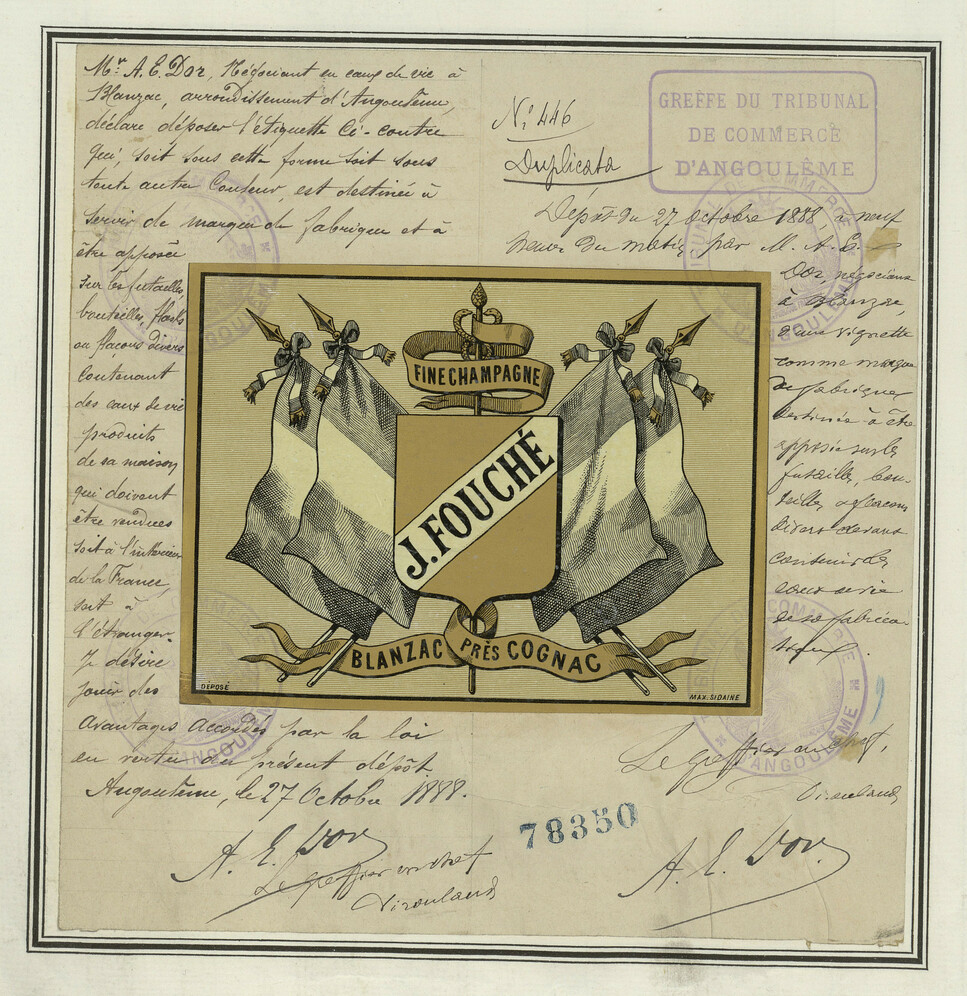 Mr. A. E. Dor, Négociant en eaux de vie à
Blanzac, arrondissement d'Angoulême,
déclare déposer l'étiquette Ci-contre
qui, soit sous cette forme soit sous
toute autre Couleur, est destinée à
servir de marque de fabrique et à
être apposée
sur les futailles,
bouteilles, flasks
ou flaçons divers
Contenant
des eaux de vie
produits
de sa maison
qui doivent
être vendues
soit à l'intérieur
de la France
soit à
l'étranger.
Je désire
jouir des
avantages accordés par la loi
en vertu du présent dépôt
Angoulême, le 27 Octobre 1888.
A. E. Dor
Le greffier en chef
N° 446
Duplicata
GREFFE DU TRIBUNAL
DE COMMERCE
D'ANGOULÊME
Dépôt du 27 octobre 1888 à neuf
heures du matin, par M. A. E.
Dor, négociant
à Blanzac,
d'une vignette
comme marque
de fabrique
destinée à être
apposée sur les
futailles, bou-
teilles et flacons
divers devant
contenir des
eaux de vie
de sa fabrica-
tion.
Le greffier en chef,
A. E. Dor.
FINE CHAMPAGNE
J. FOUCHÉ
BLANZAC PRÈS COGNAC
DÉPOSÉ
MAX. SIDAINE
78350